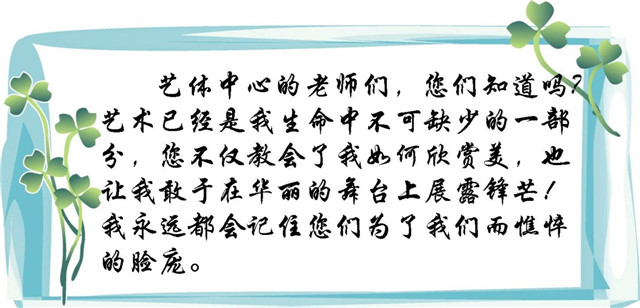 艺体中心的老师们，您们知道吗？
艺术已经是我生命中不可缺少的一部
分，您不仅教会了我如何欣赏美，也
让我敢于在华丽的舞台上展露锋芒！
我永远都会记住您们为了我们而憔悴
的脸庞。